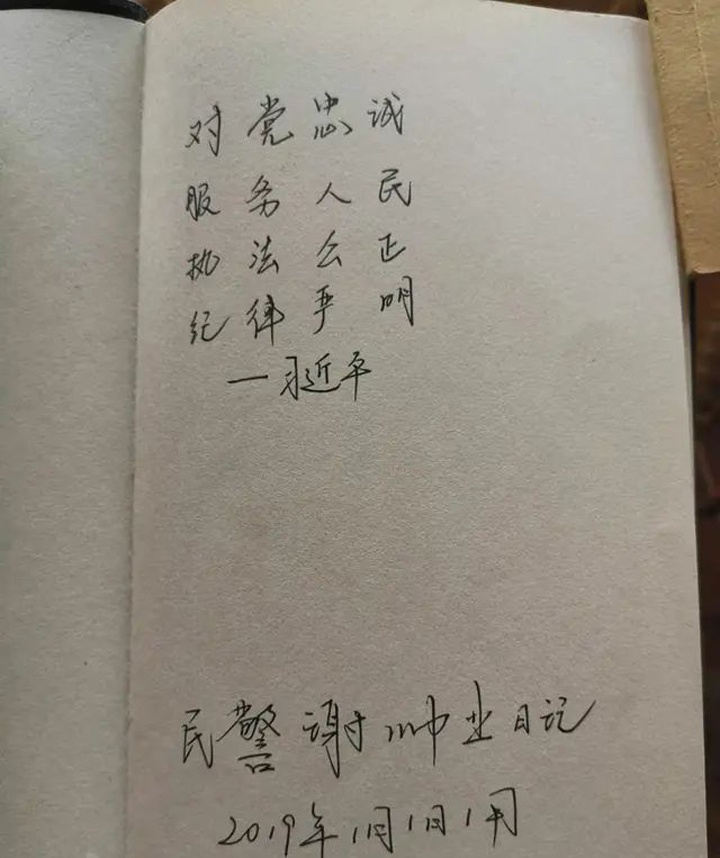 对党忠诚
服务人民
执法公正
纪律严明
—习近平
民警谢帅业日记
2019年1月1日1月